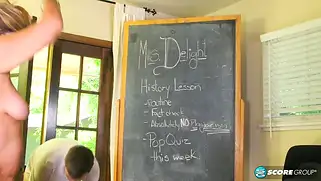 Miss Delight
History Lesson
-Routine
- Fact check
- Absolutely NO Playpenis
-Pop Quiz
this week
SCOREGROUP